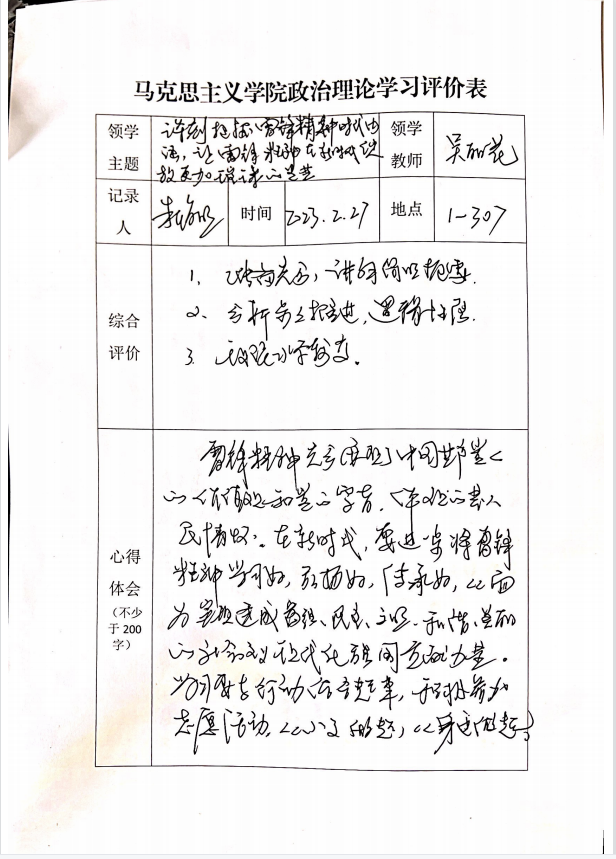 马克思主义学院政治理论学习评价表
领学主题
深刻把握雷锋精神时代内
涵，让雷锋精神在新时代绽
放更加璀璨的光芒
领学教师
吴丽花
记录人
时间
2023.2.27
地点
1-307
综合评价
1、内容充实，讲解简明扼要.
2、分析层层推进，逻辑性强.
3、
心得体会（不少于200字）
雷锋精神充分展现了中国共产党人
的价值观和
民情怀。在新时代，要进一步将雷锋
精神学习好，弘扬好，传承好，从而
为实现建成富强、民主、文明、和谐、美丽
的社会主义现代化强国贡献力量。
学习要在行动，积极参加
志愿活动，从小文做起，从身边做起